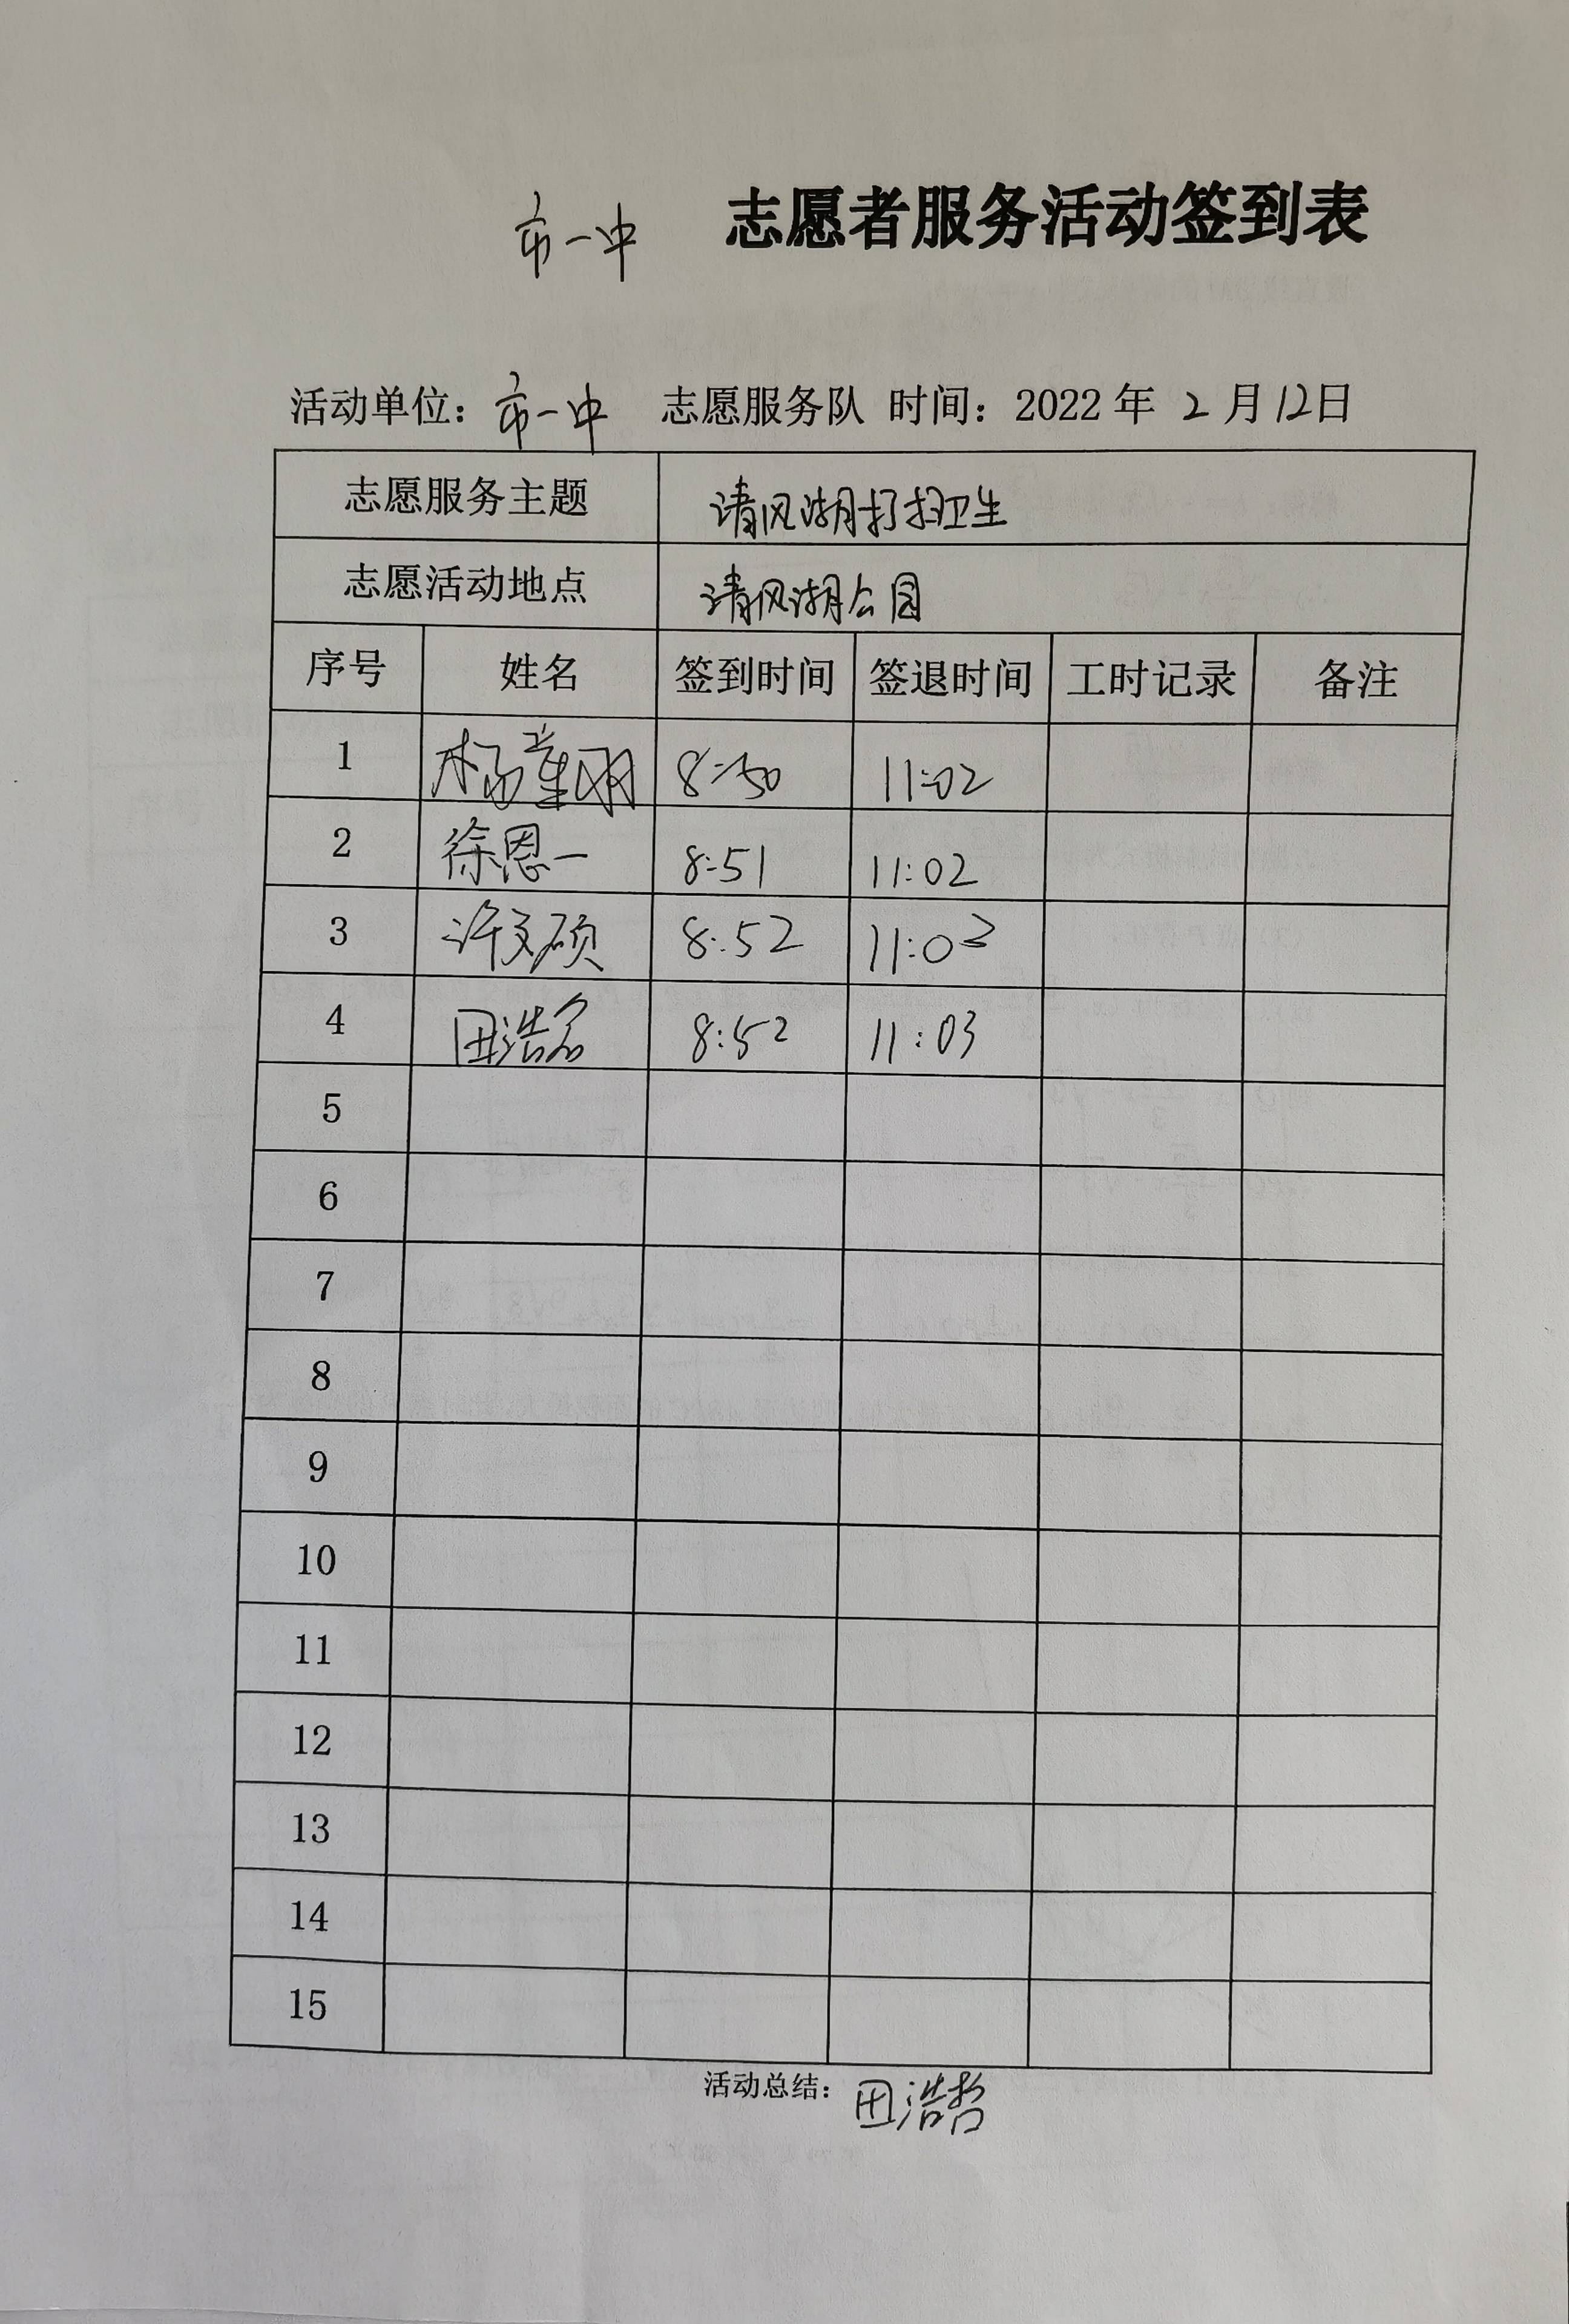 市一中 志愿者服务活动签到表
活动单位：市一中 志愿服务队 时间：2022年 2月12日
志愿服务主题 清风湖打扫卫生
志愿活动地点 清风湖公园
序号 姓名 签到时间 签退时间 工时记录 备注
1 杨董翔 8:50 11:02
2 徐恩一 8:51 11:02
3 许文硕 8:52 11:03
4 田浩 8:52 11:03
5
6
7
8
9
10
11
12
13
14
15
活动总结：田浩哲